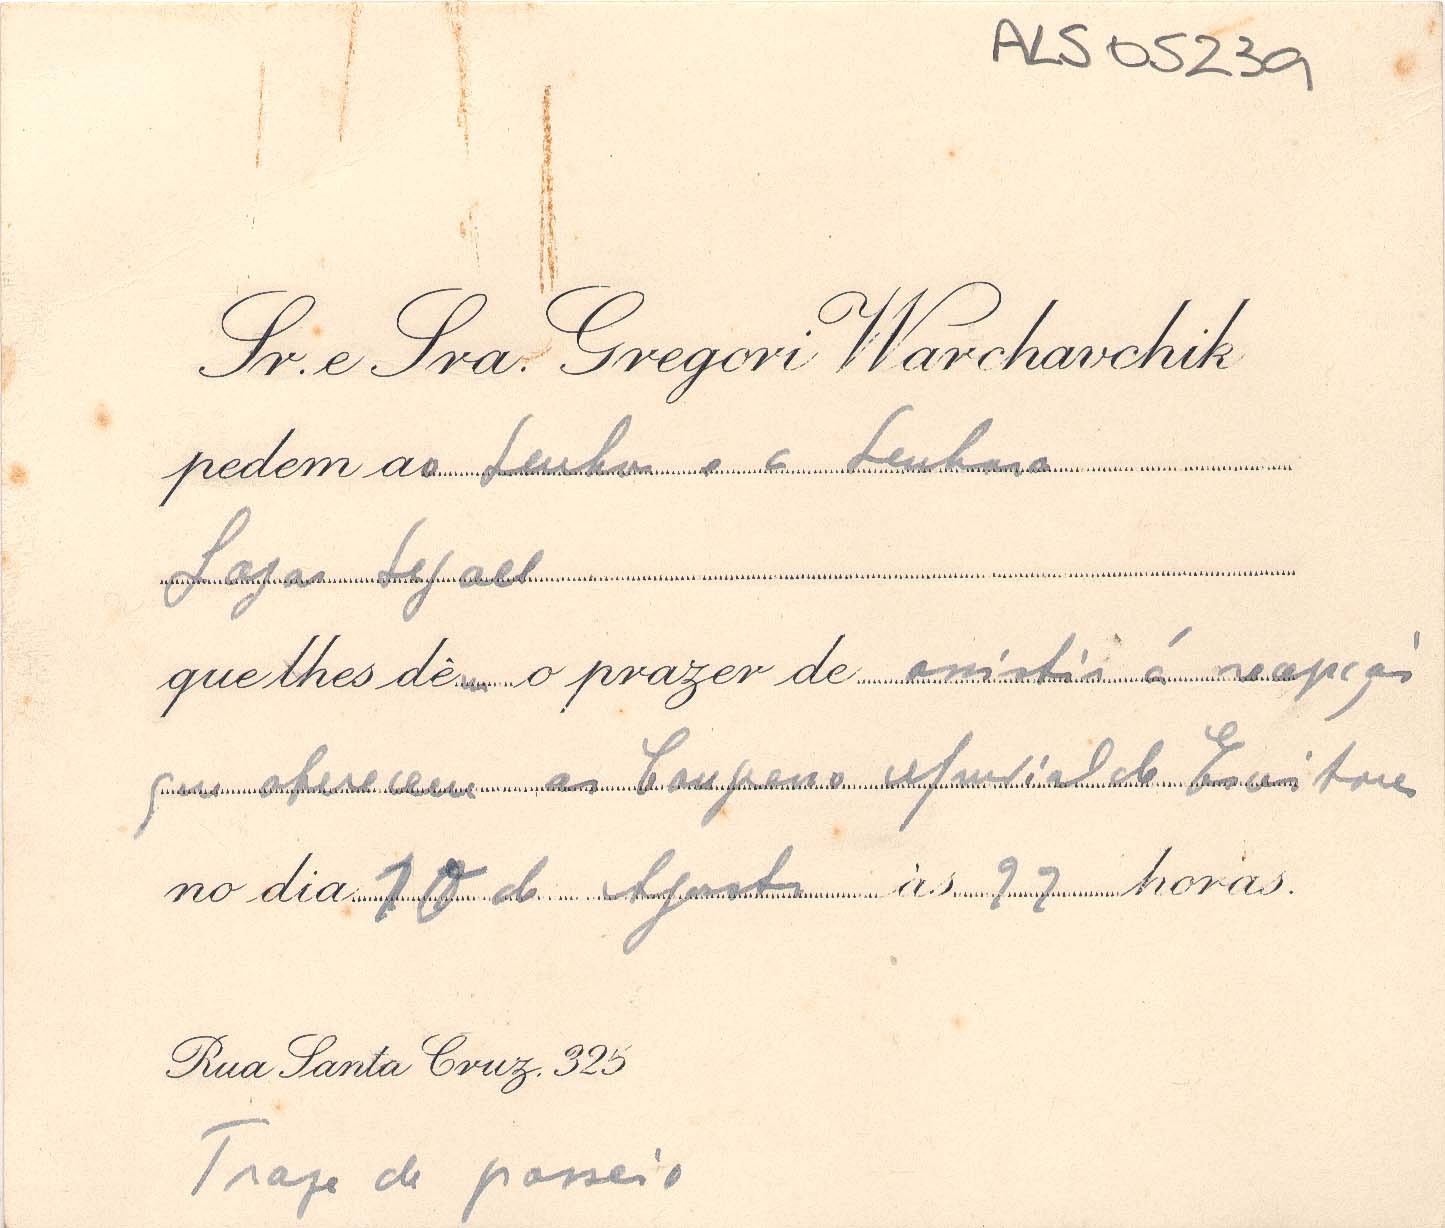 ALS 05239
Sr. e Sra. Gregori Warchavchik
pedem ao Senhor e a Senhora
Lasar Segall
que lhes dêm o prazer de assistir á recepção
que oferecem ao Congresso de Escritores
no dia 10 de Agosto às horas.
Rua Santa Cruz. 325
Traje de passeio